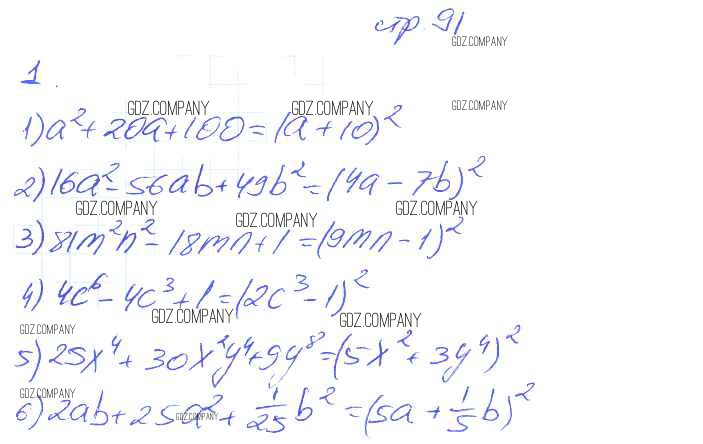 стр. 91
GDZ.COMPANY
1.
GDZ.COMPANY GDZ.COMPANY GDZ.COMPANY
1) a² + 20a + 100 = (a + 10)²
2) 16a² - 56ab + 49b² = (4a - 7b)²
GDZ.COMPANY GDZ.COMPANY GDZ.COMPANY
3) 81m²n² - 18mn + 1 = (9mn - 1)²
4) 4c⁶ - 4c³ + 1 = (2c³ - 1)²
GDZ.COMPANY GDZ.COMPANY GDZ.COMPANY
5) 25x⁴ + 30x²y⁴ + 9y⁸ = (5x² + 3y⁴)²
GDZ.COMPANY
6) 2ab + 25a² + 1/25 b² = (5a + 1/5 b)²
GDZ.COMPANY